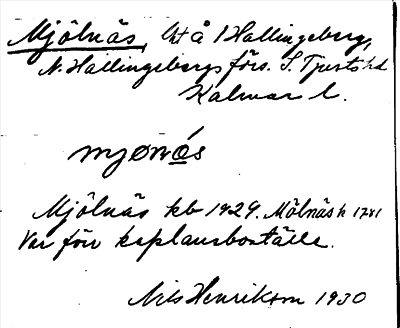 Mjölnäs, Ht å 1 Hallingeberg,
N. Hallingebergs förs. S. Tjusts hd
Kalmar l.
mjønás
Mjölnäs kb 1929. Mölnäs h 1781
Var förr kaplansboställe.
Nils Henrikson 1930